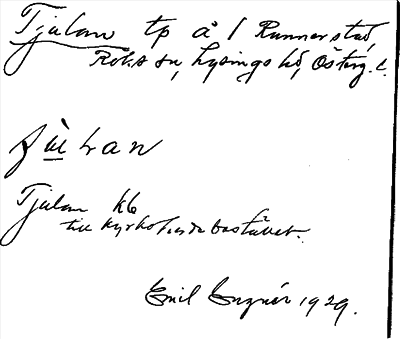 Tjalan tp å / Runnerstad,
Roks sn, Lysings hd, Österg. l.
Tjalan kb
till kyrkoherdebostället.
Emil Engnér 1929.